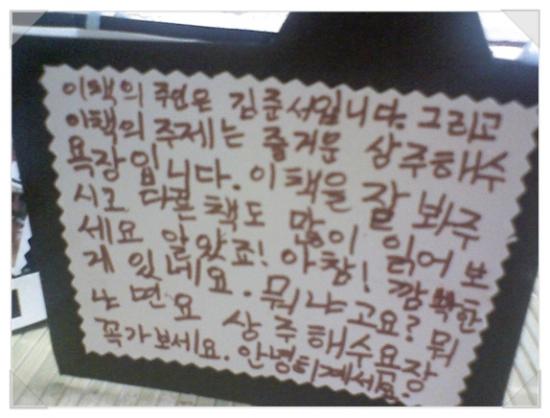 이책의 주인은 김준서입니다. 그리고
이책의 주제는 즐거운 상주해수
욕장입니다. 이 책을 잘 봐주
시고 다른 책도 많이 읽어 보
세요 알았죠! 아참! 깜빡한
게 있네요. 뭐냐고요? 뭐
냐면요 상주해수욕장
꼭가보세요. 안녕히계세요.